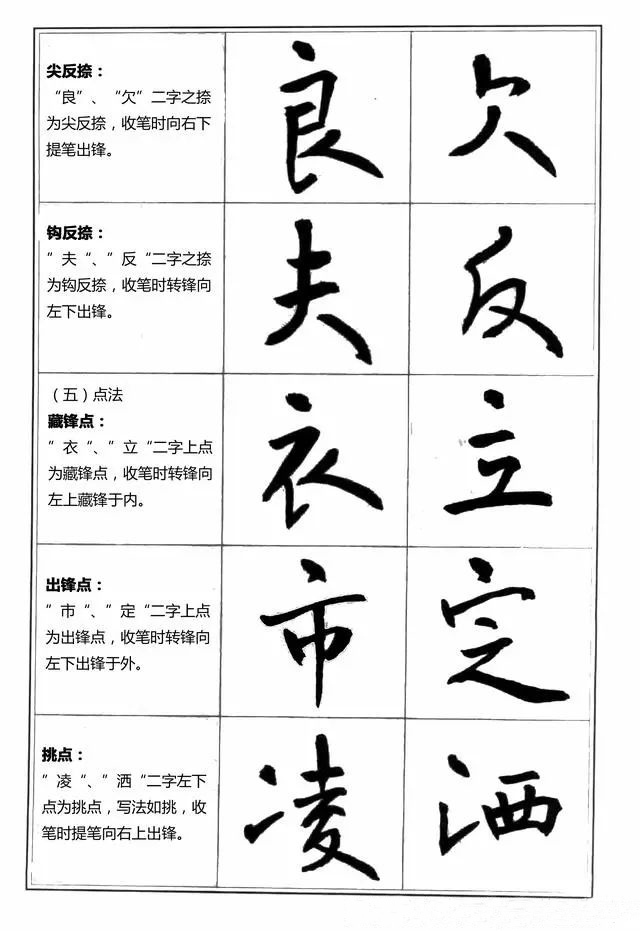 尖反捺：
“良”、“欠”二字之捺
为尖反捺，收笔时向右下
提笔出锋。
良 欠
钩反捺：
”夫“、”反“二字之捺
为钩反捺，收笔时转锋向
左下出锋。
夫 反
（五）点法
藏锋点：
”衣“、”立“二字上点
为藏锋点，收笔时转锋向
左上藏锋于内。
衣 立
出锋点：
”市“、”定“二字上点
为出锋点，收笔时转锋向
左下出锋于外。
市 定
挑点：
”凌“、”洒“二字左下
点为挑点，写法如挑，收
笔时提笔向右上出锋。
凌 洒